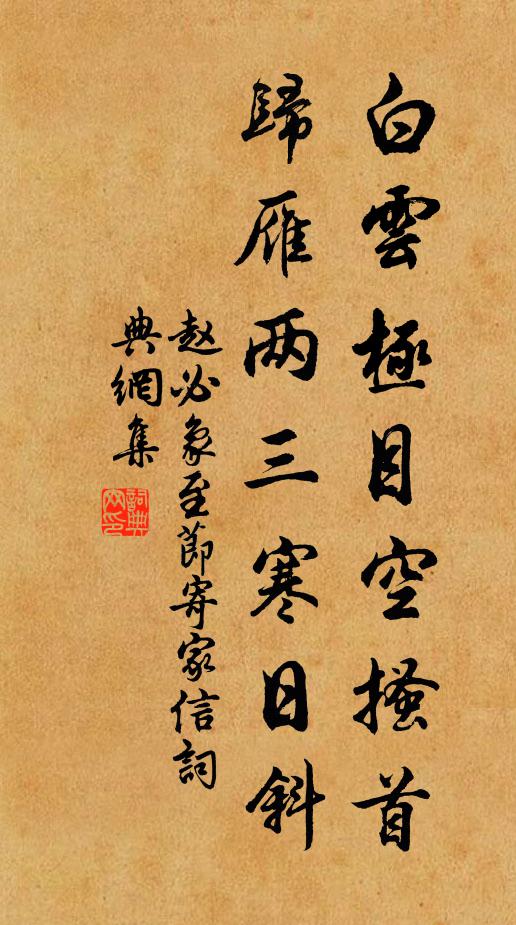 白雲極目空搔首
歸雁两三寒日斜
赵必象至節寄家信詞
典網集
詞典网印